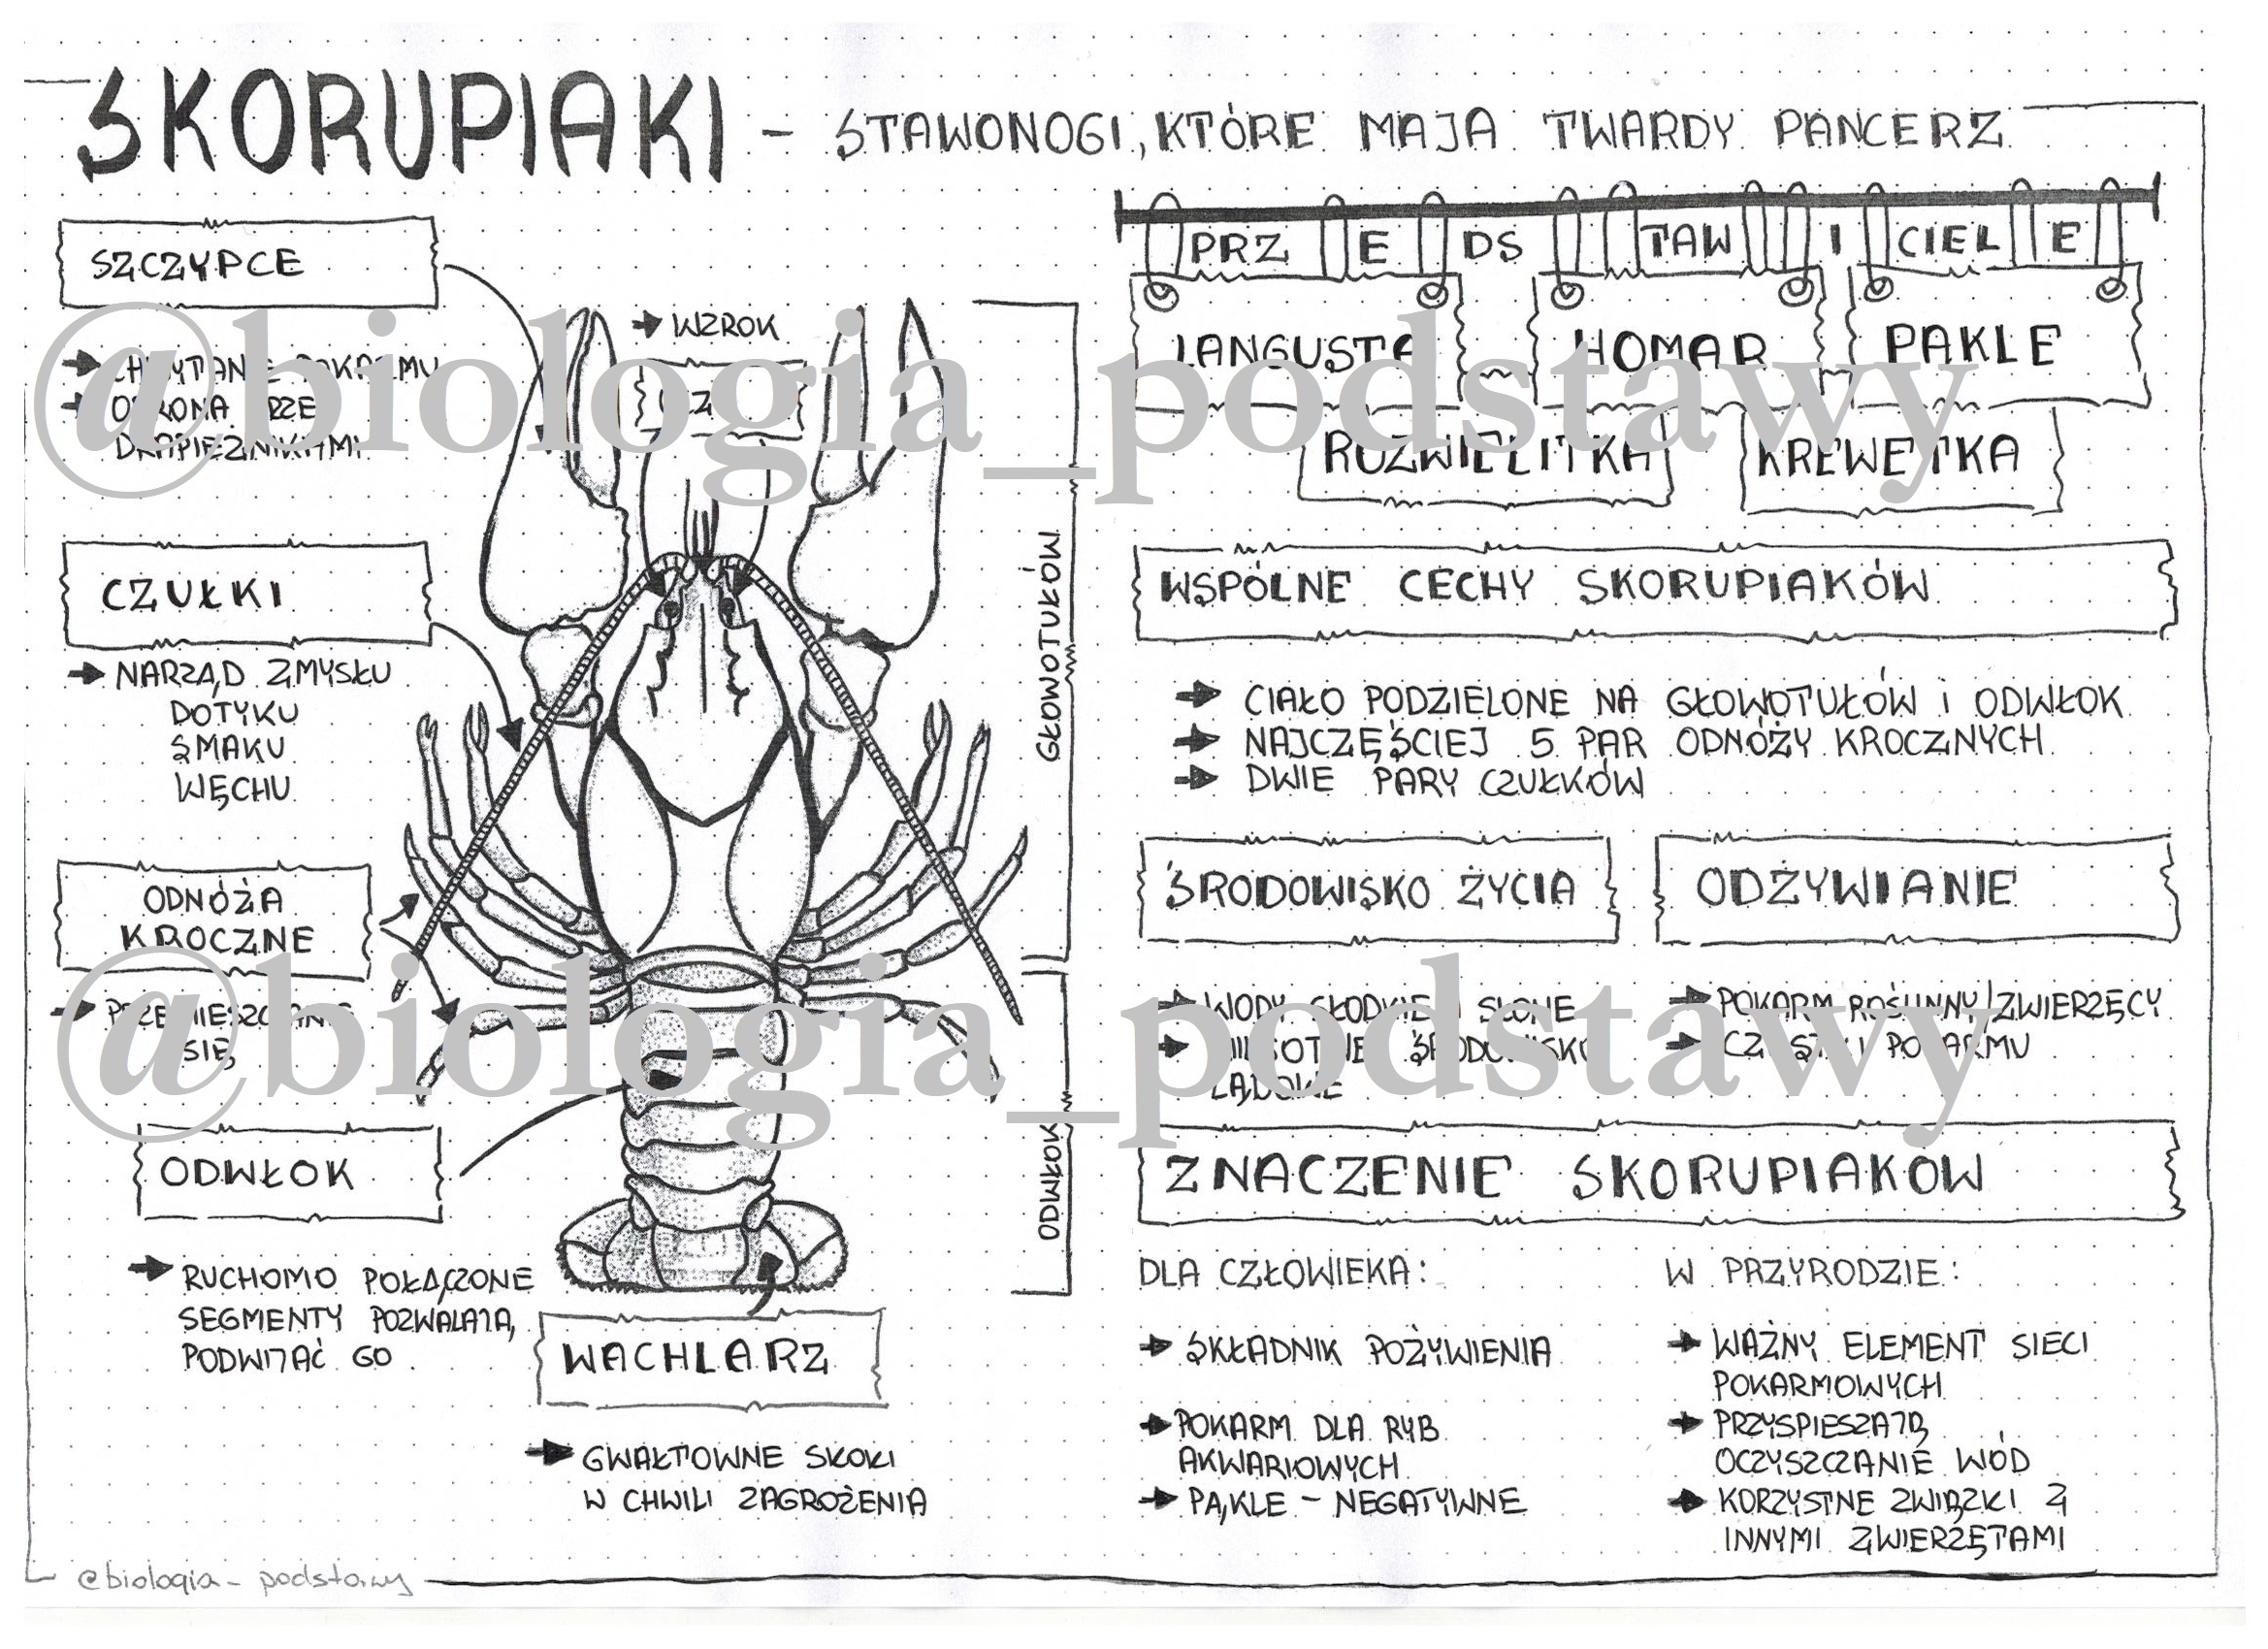 SKORUPIAKI - STAWONOGI, KTÓRE MAJA TWARDY PANCERZ
SZCZYPCE
→ CHWYTANIE POKARMU
→ OBRONA PRZED
DRAPIEŻNIKAMI
→ WZROK
CZUŁKI
→ NARZĄD ZMYSŁU
DOTYKU
SMAKU
WĘCHU
ODNÓŻA
KROCZNE
→ PRZEMIESZCZANIE
SIĘ
ODWŁOK
→ RUCHOMO POŁĄCZONE
SEGMENTY POZWALAJĄ
PODWIJAĆ GO
WACHLARZ
→ GWAŁTOWNE SKOKI
W CHWILI ZAGROŻENIA
GŁOWOTUŁÓW
ODWŁOK
PRZEDSTAWICIELE
LANGUSTA
HOMAR
PAKLE
ROZWIELITKA
KREWETKA
WSPÓLNE CECHY SKORUPIAKÓW
→ CIAŁO PODZIELONE NA GŁOWOTUŁÓW i ODWŁOK
→ NAJCZĘŚCIEJ 5 PAR ODNÓŻY KROCZNYCH
→ DWIE PARY CZUŁKÓW
ŚRODOWISKO ŻYCIA
→ WODY SŁODKIE I SŁONE
→ WILGOTNE ŚRODOWISKO
LĄDOWE
ODŻYWIANIE
→ POKARM ROŚLINNY/ZWIERZĘCY
→ CZĄSTKI POKARMU
ZNACZENIE SKORUPIAKÓW
DLA CZŁOWIEKA:
→ SKŁADNIK POŻYWIENIA
→ POKARM DLA RYB
AKWARIOWYCH
→ PĄKLE - NEGATYWNE
W PRZYRODZIE:
→ WAŻNY ELEMENT SIECI
POKARMOWYCH
→ PRZYSPIESZAJĄ
OCZYSZCZANIE WÓD
→ KORZYSTNE ZWIĄZKI Z
INNYMI ZWIERZĘTAMI
@biologia_podstawy
@biologia_podstawy
@biologia_podstawy